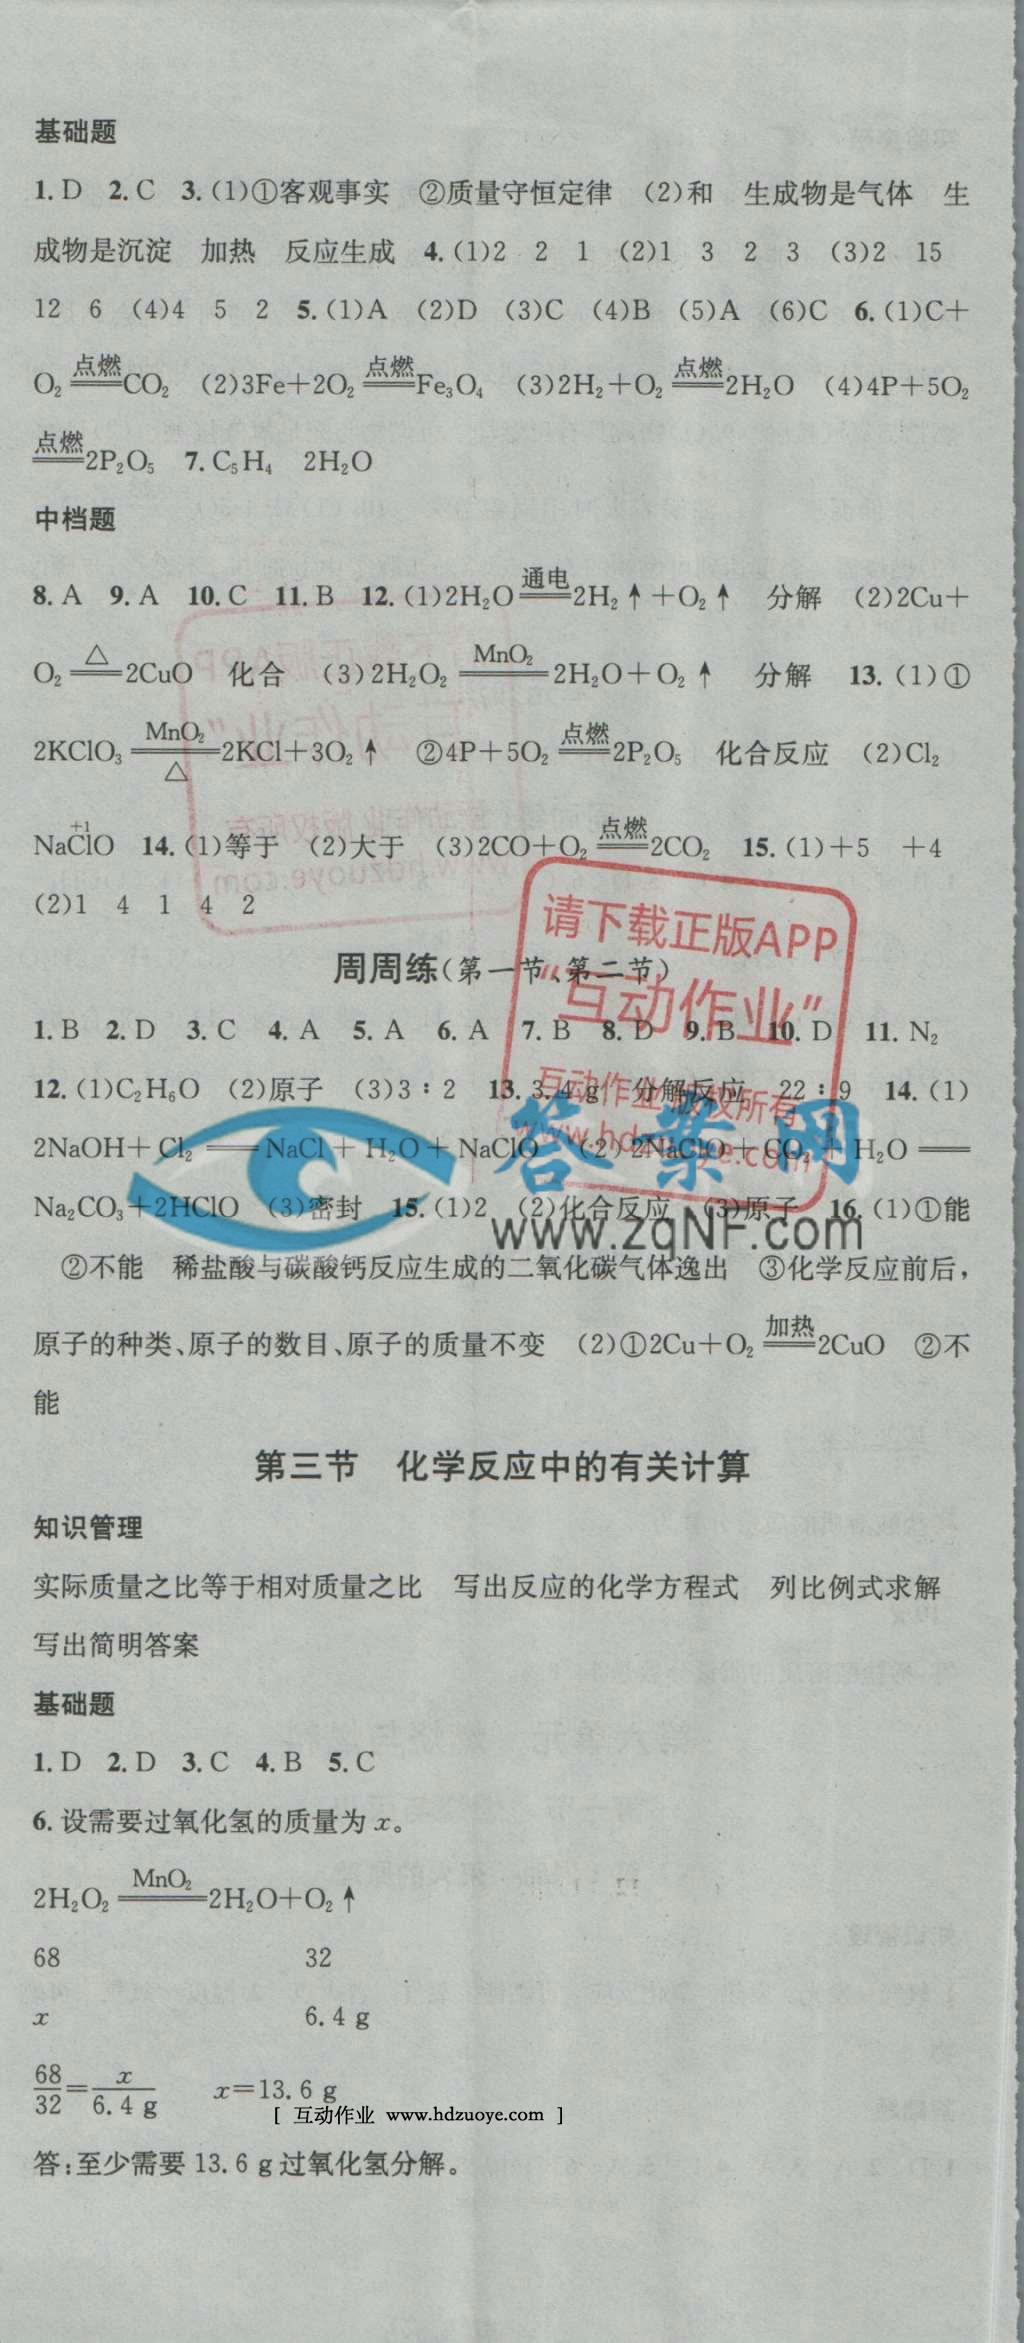 基础题
1. D 2. C 3. (1)①客观事实 ②质量守恒定律 (2)和 生成物是气体 生
成物是沉淀 加热 反应生成 4. (1)2 2 1 (2)1 3 2 3 (3)2 15
12 6 (4)4 5 2 5. (1)A (2)D (3)C (4)B (5)A (6)C 6. (1)C+
O₂ 点燃══ CO₂ (2)3Fe+2O₂ 点燃══ Fe₃O₄ (3)2H₂+O₂ 点燃══ 2H₂O (4)4P+5O₂
点燃══ 2P₂O₅ 7. C₅H₄ 2H₂O
中档题
8. A 9. A 10. C 11. B 12. (1)2H₂O 通电══ 2H₂↑+O₂↑ 分解 (2)2Cu+
O₂ △══ 2CuO 化合 (3)2H₂O₂ MnO₂══ 2H₂O+O₂↑ 分解 13. (1)①
2KClO₃ MnO₂══△ 2KCl+3O₂↑ ②4P+5O₂ 点燃══ 2P₂O₅ 化合反应 (2)Cl₂
+1
NaClO 14. (1)等于 (2)大于 (3)2CO+O₂ 点燃══ 2CO₂ 15. (1)+5 +4
(2)1 4 1 4 2
请下载正版APP
“互动作业”
互动作业 版权所有
www.hdzuoye.com
周周练(第一节、第二节)
1. B 2. D 3. C 4. A 5. A 6. A 7. B 8. D 9. B 10. D 11. N₂
12. (1)C₂H₆O (2)原子 (3)3∶2 13. 3.4 g 分解反应 22∶9 14. (1)
2NaOH+Cl₂══NaCl+H₂O+NaClO (2)2NaClO+CO₂+H₂O══
Na₂CO₃+2HClO (3)密封 15. (1)2 (2)化合反应 (3)原子 16. (1)①能
答案网
www.zqNF.com
②不能 稀盐酸与碳酸钙反应生成的二氧化碳气体逸出 ③化学反应前后,
原子的种类、原子的数目、原子的质量不变 (2)①2Cu+O₂ 加热══ 2CuO ②不
能
第三节 化学反应中的有关计算
知识管理
实际质量之比等于相对质量之比 写出反应的化学方程式 列比例式求解
写出简明答案
基础题
1. D 2. D 3. C 4. B 5. C
6. 设需要过氧化氢的质量为 x。
2H₂O₂ MnO₂══ 2H₂O+O₂↑
68 32
x 6.4 g
68/32=x/6.4 g x=13.6 g
[ 互动作业 www.hdzuoye.com ]
答:至少需要 13.6 g 过氧化氢分解。